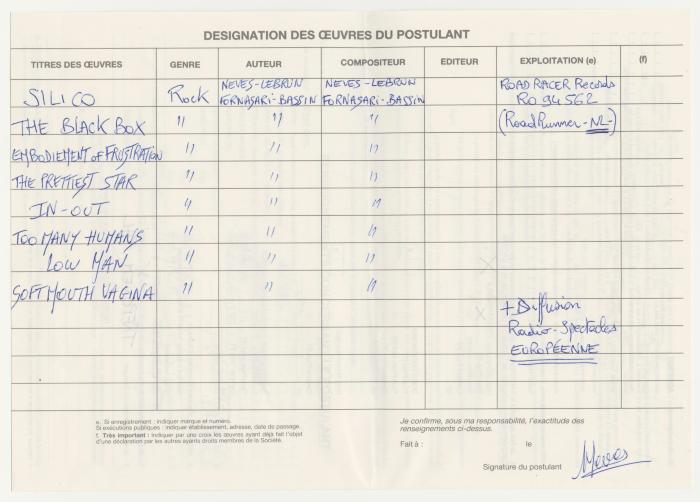 DESIGNATION DES ŒUVRES DU POSTULANT
TITRES DES ŒUVRES GENRE AUTEUR COMPOSITEUR EDITEUR EXPLOITATION (e) (f)
SILICO Rock NEVES-LEBRUN FORNASARI-BASSIN NEVES-LEBRUN FORNASARI-BASSIN ROAD RACER Records RO 94562
THE BLACK BOX " " " (RoadRunner-NL-)
EMBODIEMENT of FRUSTRATION " " "
THE PRETTIEST STAR " " "
IN-OUT " " "
TOO MANY HUMANS " " "
LOW MAN " " "
SOFT MOUTH VAGINA " " "
+ Diffusion
Radio-Spectacles
EUROPÉENNE
e. Si enregistrement : indiquer marque et numéro.
Si exécutions publiques : indiquer établissement, adresse, date de passage.
f. Très important : indiquer par une croix les œuvres ayant déjà fait l'objet
d'une déclaration par les autres ayants droits membres de la Société.
Je confirme, sous ma responsabilité, l'exactitude des
renseignements ci-dessus.
Fait à : le
Signature du postulant
Neves